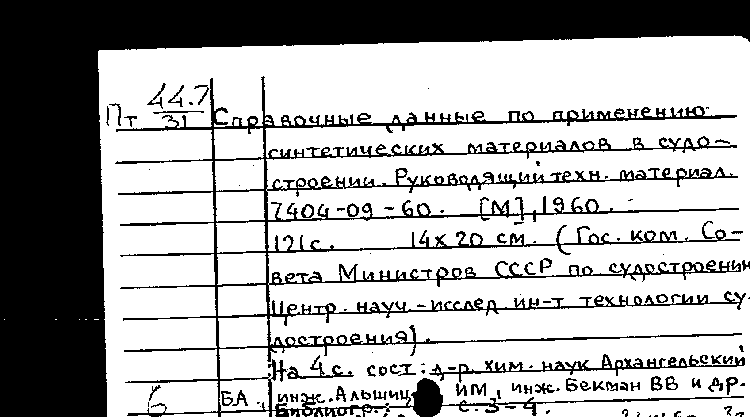 Пт 44.7/31 Справочные данные по применению
синтетических материалов в судо-
строении. Руководящий техн. материал.
7404-09-60. [М], 1960.
121с. 14х20 см. (Гос. ком. Со-
вета Министров СССР по судостроению
Центр. науч.-исслед ин-т технологии су-
достроения).
На 4с. сост: д-р хим. наук Архангельский
6 БА, инж. Альшиц ИМ, инж. Бекман ВВ и др.
Библиогр.: с. 3-4.